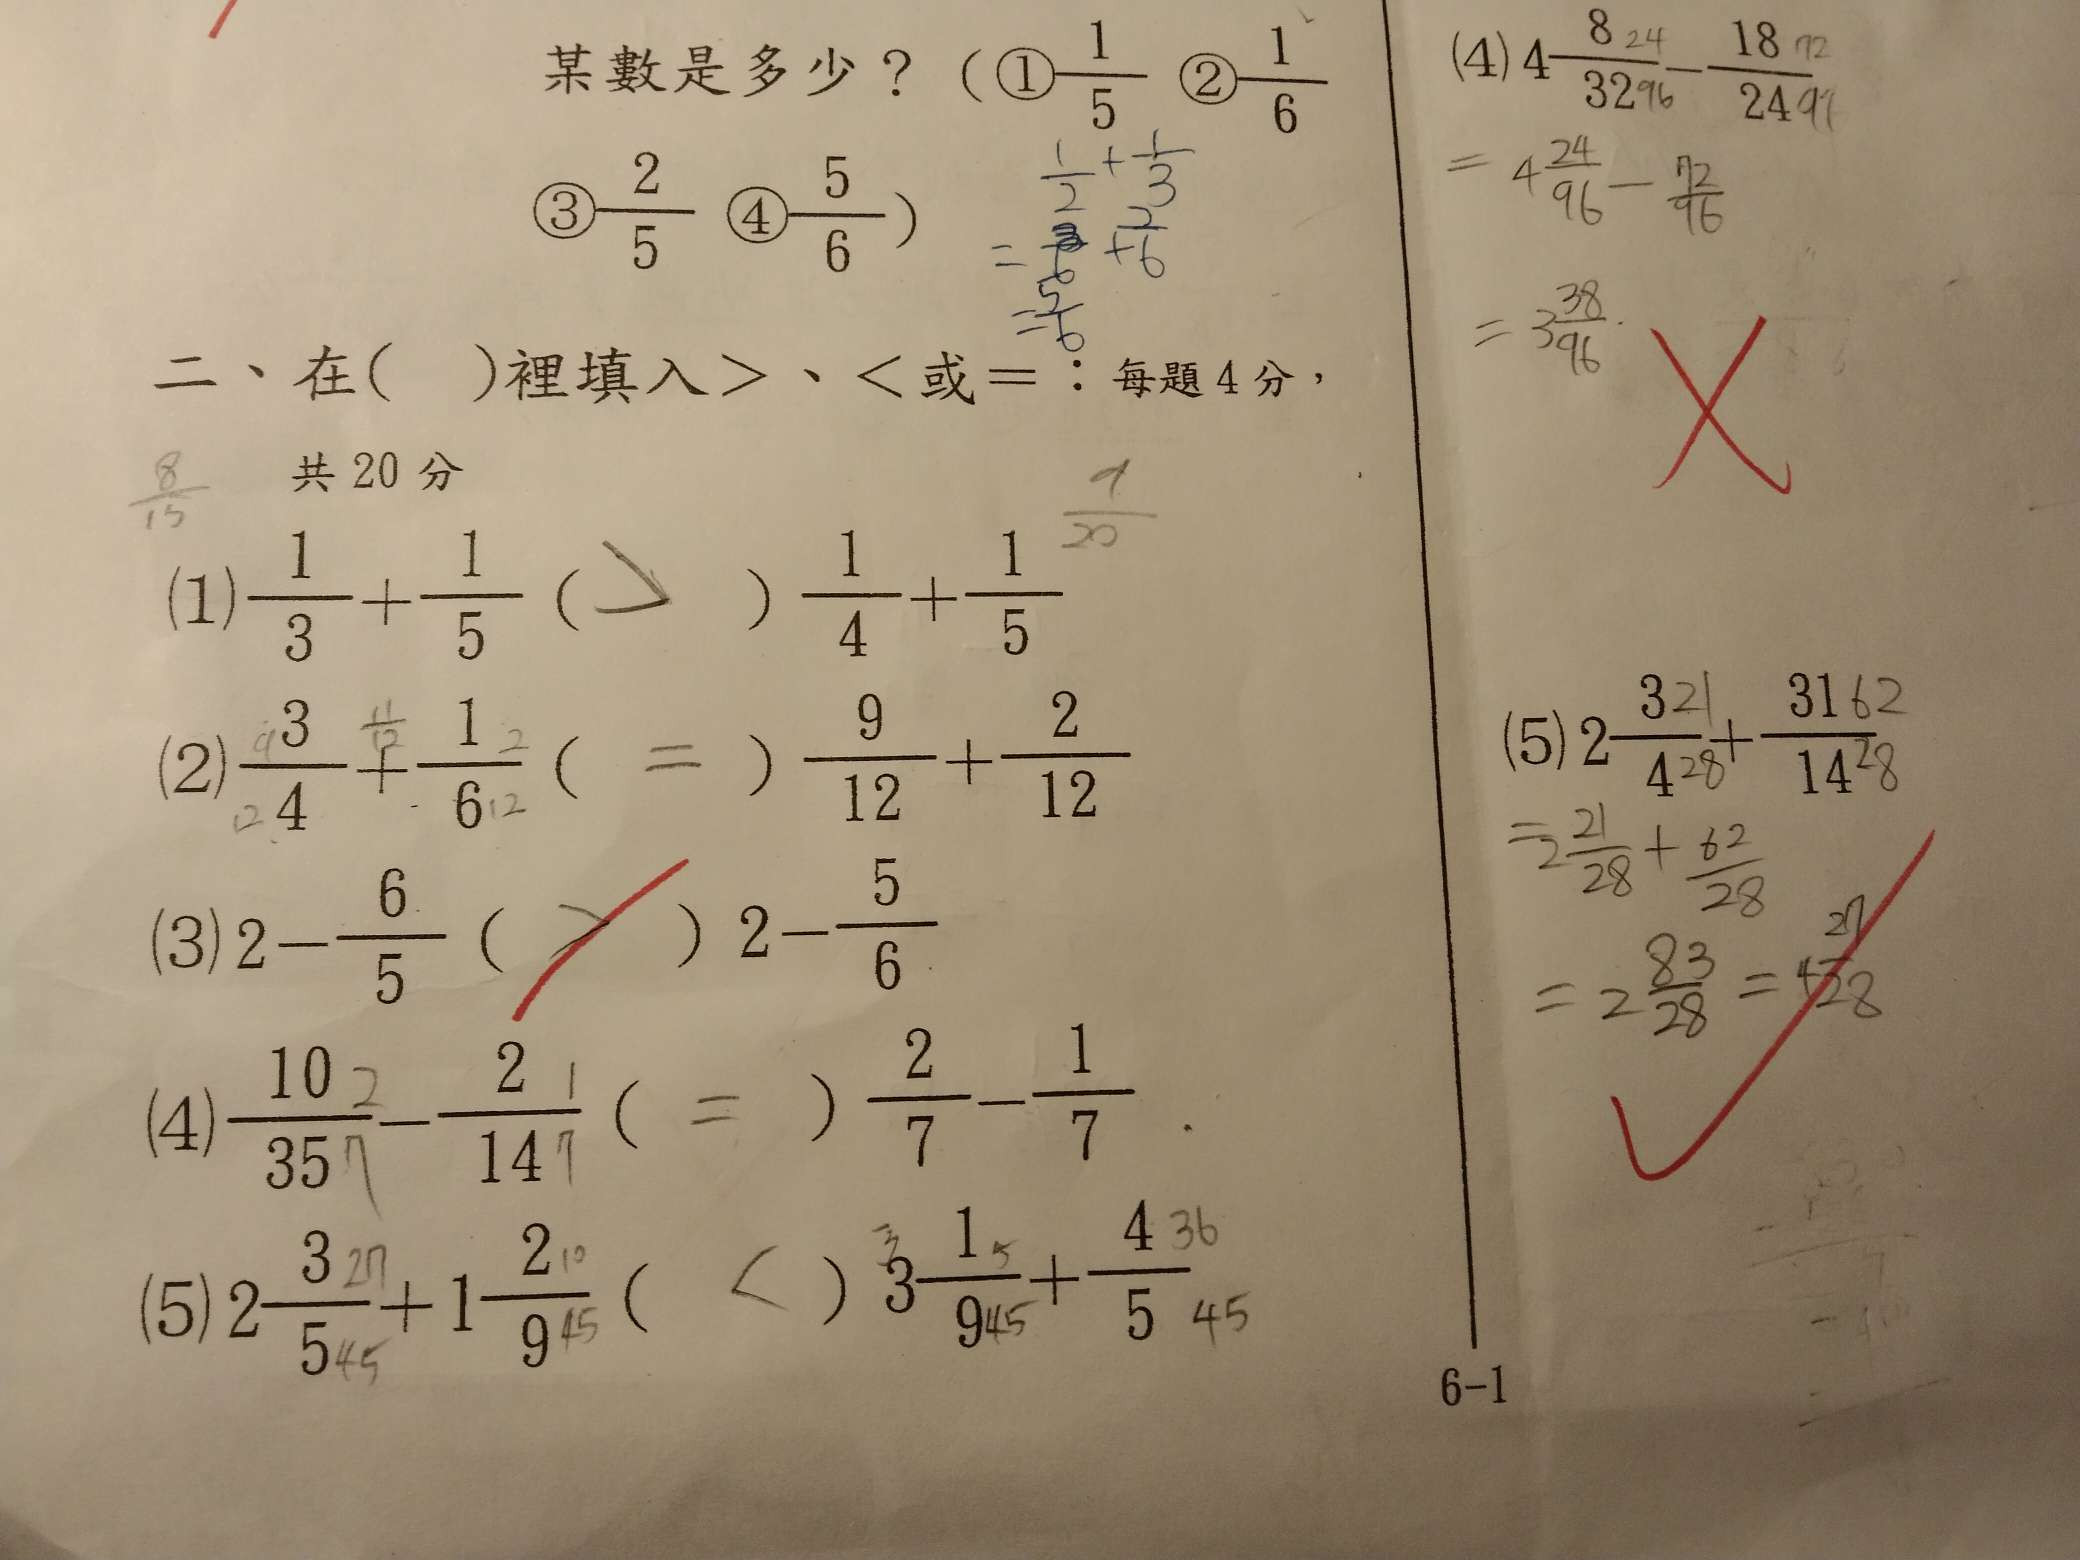 某數是多少？（①1/5 ②1/6
③2/5 ④5/6）
1/2 + 1/3
= 3/6 + 2/6
= 5/6
二、在(　)裡填入＞、＜或＝：每題4分，
共20分
8/15
9/20
(1) 1/3 + 1/5 ( > ) 1/4 + 1/5
11/12
(2) 9 3/4 12 + 1/6 2 12 ( = ) 9/12 + 2/12
(3) 2 − 6/5 ( > ) 2 − 5/6
(4) 10/35 2 7 − 2/14 1 7 ( = ) 2/7 − 1/7
(5) 2 3/5 27 45 + 1 2/9 10 45 ( < ) 3 1/9 5 45 + 4/5 36 45
(4) 4 8/32 24 96 − 18/24 72
= 4 24/96 − 72/96
= 3 38/96
(5) 2 3/4 21 28 + 31/14 62 28
= 2 21/28 + 62/28
= 2 83/28 = 4 27/28
6-1